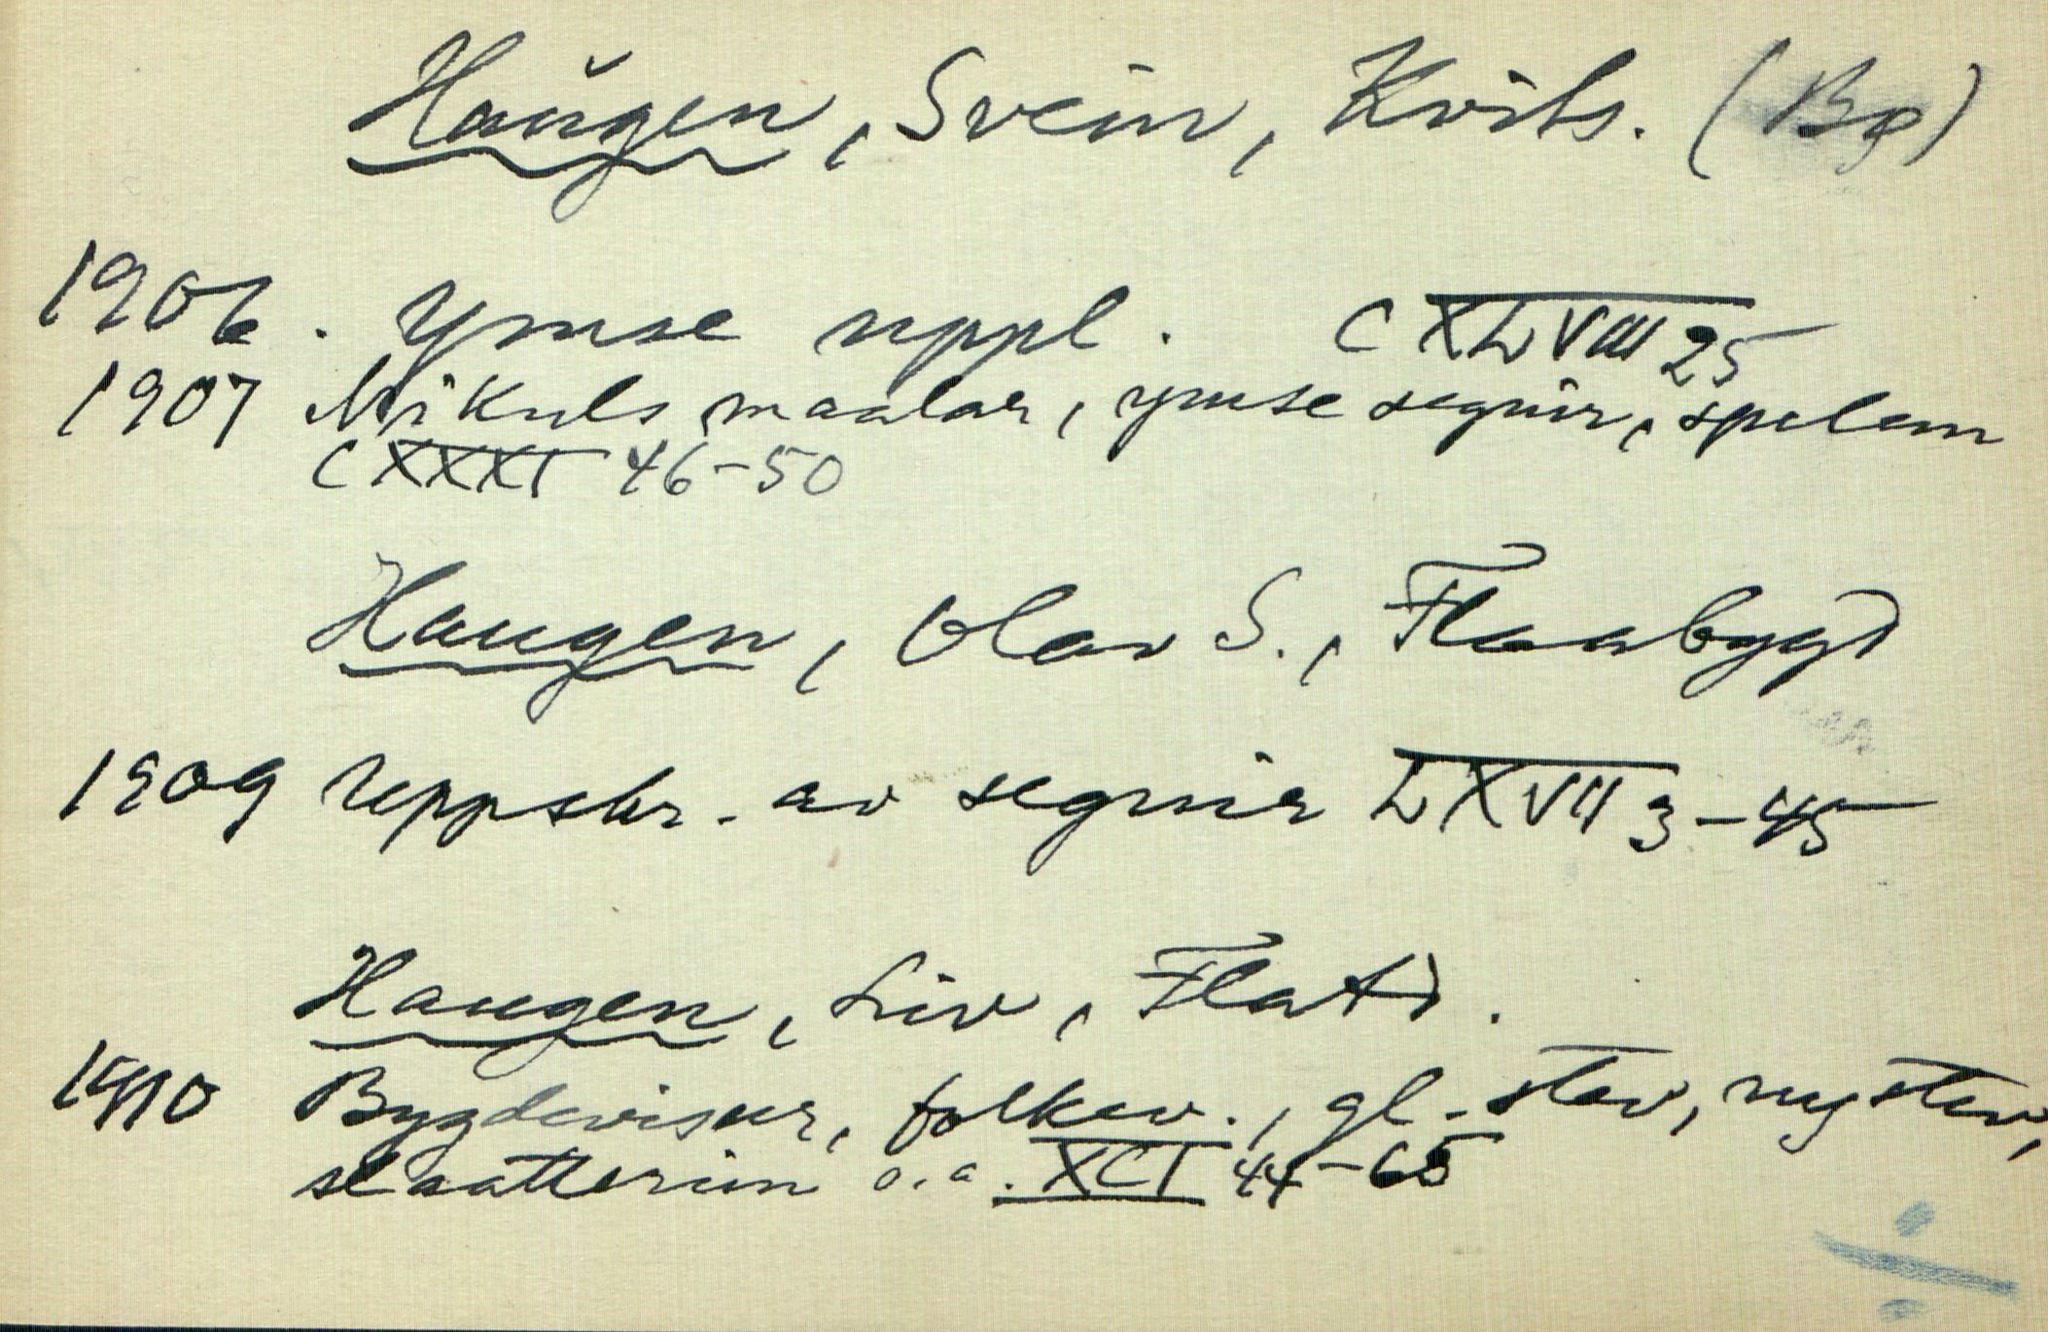 Haugen, Svein, Kvits. (Bø)
1906. Ymse uppl. CXLVIII 25
1907 Mikuls maalar, ymse segnir, spelem
CXXXI 46-50
Haugen, Olav S., Flaabygd
1909 Uppskr. av segnir LXVII 3-45
Haugen, Liv, Flatd.
1910 Bygdevisur, folkev., gl. stev, nystev,
slaatterim o.a. XCI 44-65